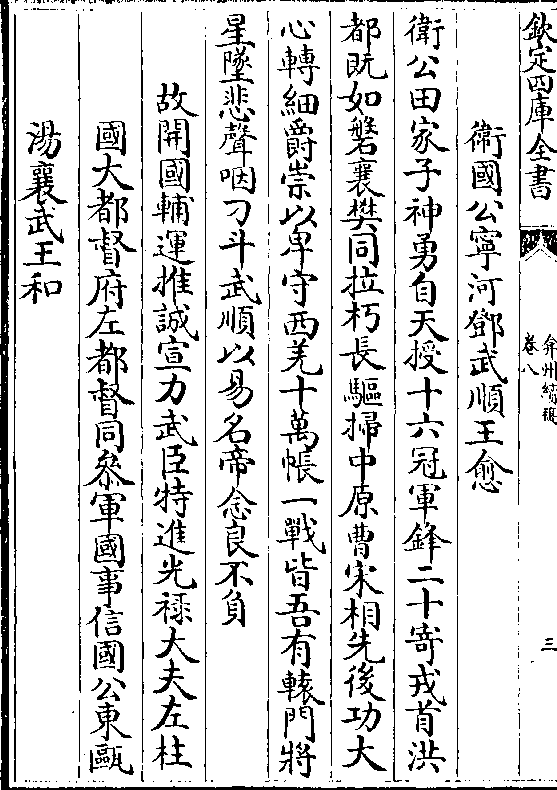 欽定四庫全書
弇州續稿
卷八
三
衛國公寧河鄧武順王愈
衛公田家子神勇自天授十六冠軍鋒二十寄戎首洪
都既如磐襄樊同拉朽長驅掃中原曹宋相先後功大
心轉細爵崇以卑守西羌十萬帳一戰皆吾有轅門將
星墜悲聲咽刁斗武順以易名帝念良不負
故開國輔運推誠宣力武臣特進光祿大夫左柱
國大都督府左都督同叅軍國事信國公東甌
湯襄武王和